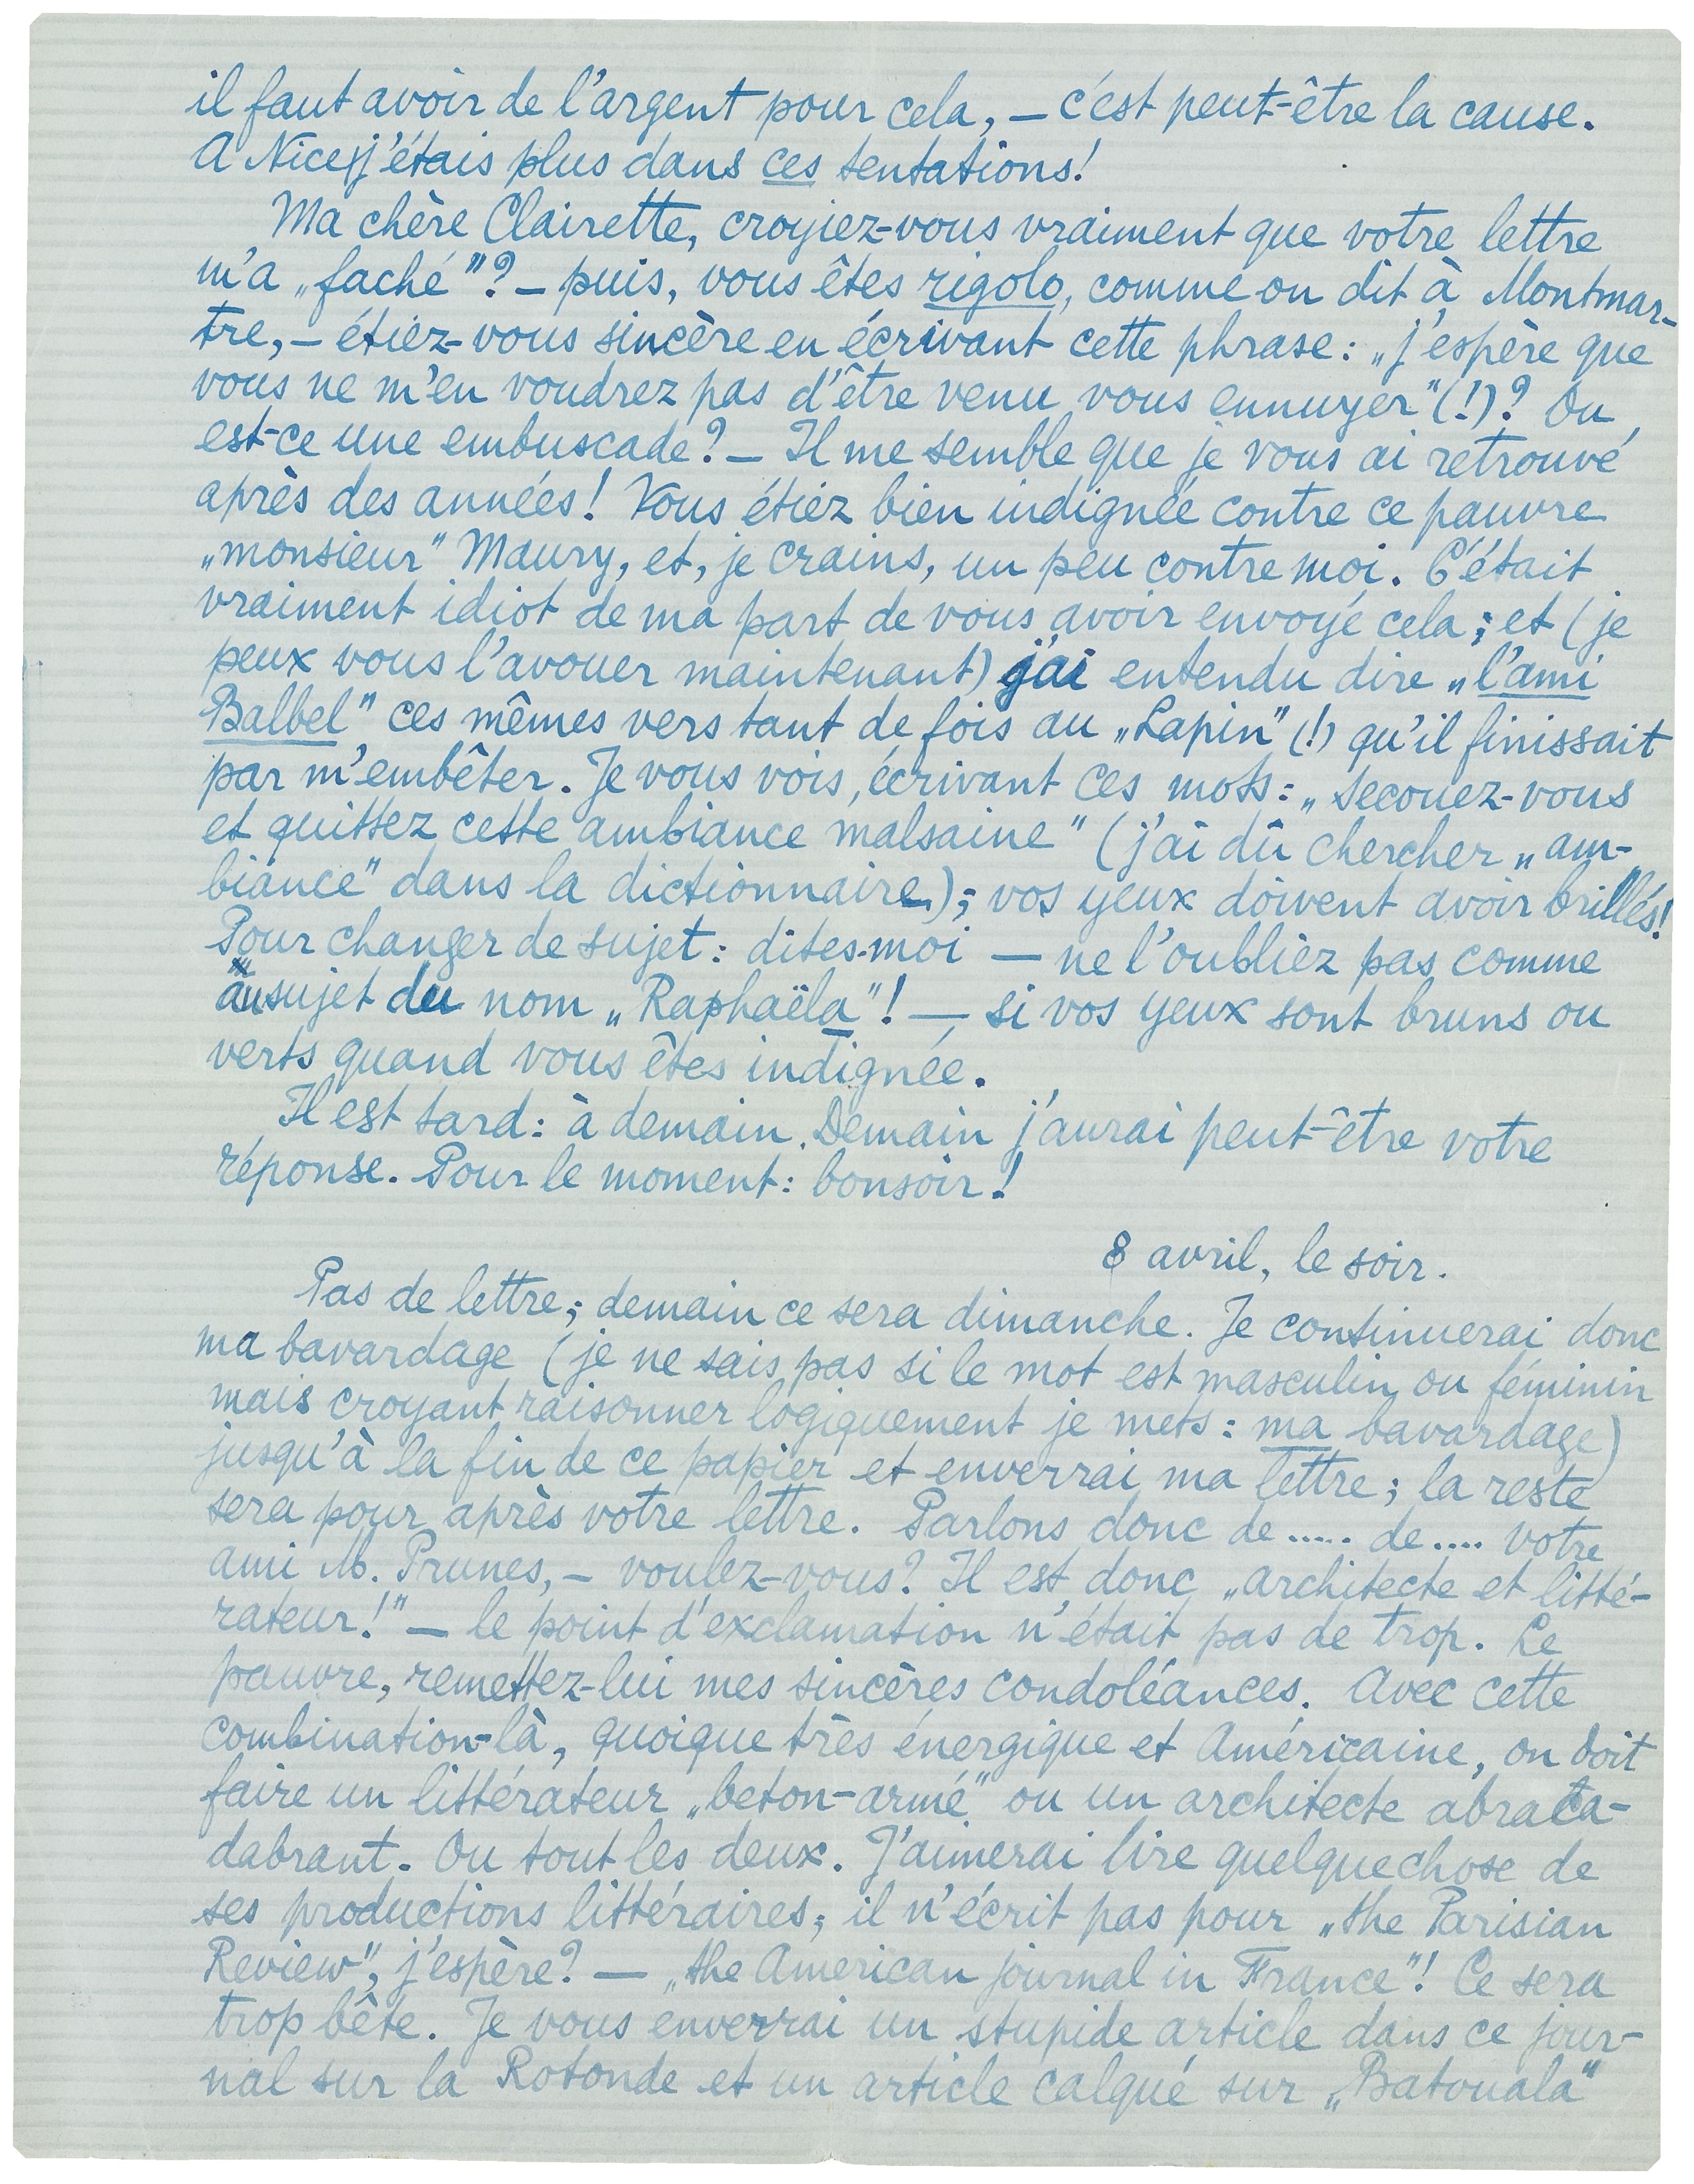 il faut avoir de l'argent pour cela, — c'est peut-être la cause.
A Nice j'étais plus dans ces tentations!
Ma chère Clairette, croyiez-vous vraiment que votre lettre
m'a „faché"? — puis, vous êtes rigolo, comme on dit à Montmar-
tre, — étiez-vous sincère en écrivant cette phrase: „j'espère que
vous ne m'en voudrez pas d'être venu vous ennuyer" (!)? Ou
est-ce une embuscade? — Il me semble que je vous ai retrouvé
après des années! Vous étiez bien indignée contre ce pauvre
„monsieur" Maury, et, je crains, un peu contre moi. C'était
vraiment idiot de ma part de vous avoir envoyé cela; et (je
peux vous l'avouer maintenant) j'ai entendu dire „l'ami
Balbel" ces mêmes vers tant de fois au „Lapin" (!) qu'il finissait
par m'embêter. Je vous vois, écrivant ces mots: „secouez-vous
et quittez cette ambiance malsaine" (j'ai dû chercher „am-
biance" dans la dictionnaire); vos yeux doivent avoir brillés!
Pour changer de sujet: dites-moi — ne l'oubliez pas comme
au sujet du nom „Raphaëla"! — si vos yeux sont bruns ou
verts quand vous êtes indignée.
Il est tard: à demain. Demain j'aurai peut-être votre
réponse. Pour le moment: bonsoir!
8 avril, le soir.
Pas de lettre; demain ce sera dimanche. Je continuerai donc
ma bavardage (je ne sais pas si le mot est masculin ou féminin
mais croyant raisonner logiquement je mets: ma bavardage)
jusqu'à la fin de ce papier et enverrai ma lettre; la reste
sera pour après votre lettre. Parlons donc de ..... de .... votre
ami M. Prunes, — voulez-vous? Il est donc „architecte et litté-
rateur!" — le point d'exclamation n'était pas de trop. Le
pauvre, remettez-lui mes sincères condoléances. Avec cette
combination-là, quoique très énergique et Américaine, on doit
faire un littérateur „beton-armé" ou un architecte abraca-
dabrant. Ou tout les deux. J'aimerai lire quelquechose de
ses productions littéraires; il n'écrit pas pour „the Parisian
Review", j'espère? — „the American journal in France"! Ce sera
trop bête. Je vous enverrai un stupide article dans ce jour-
nal sur la Rotonde et un article calqué sur „Batouala"